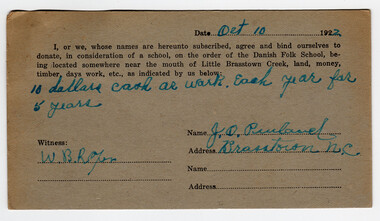 Date Oct 10 1922
I, or we, whose names are hereunto subscribed, agree and bind ourselves to
donate, in consideration of a school, on the order of the Danish Folk School, be-
ing located somewhere near the mouth of Little Brasstown Creek, land, money,
timber, days work, etc., as indicated by us below:
10 dollars cash or work. Each year for
5 years
Name J. O. Penland
Witness:
Address Brasstown N.C.
W. B.
Name
Address